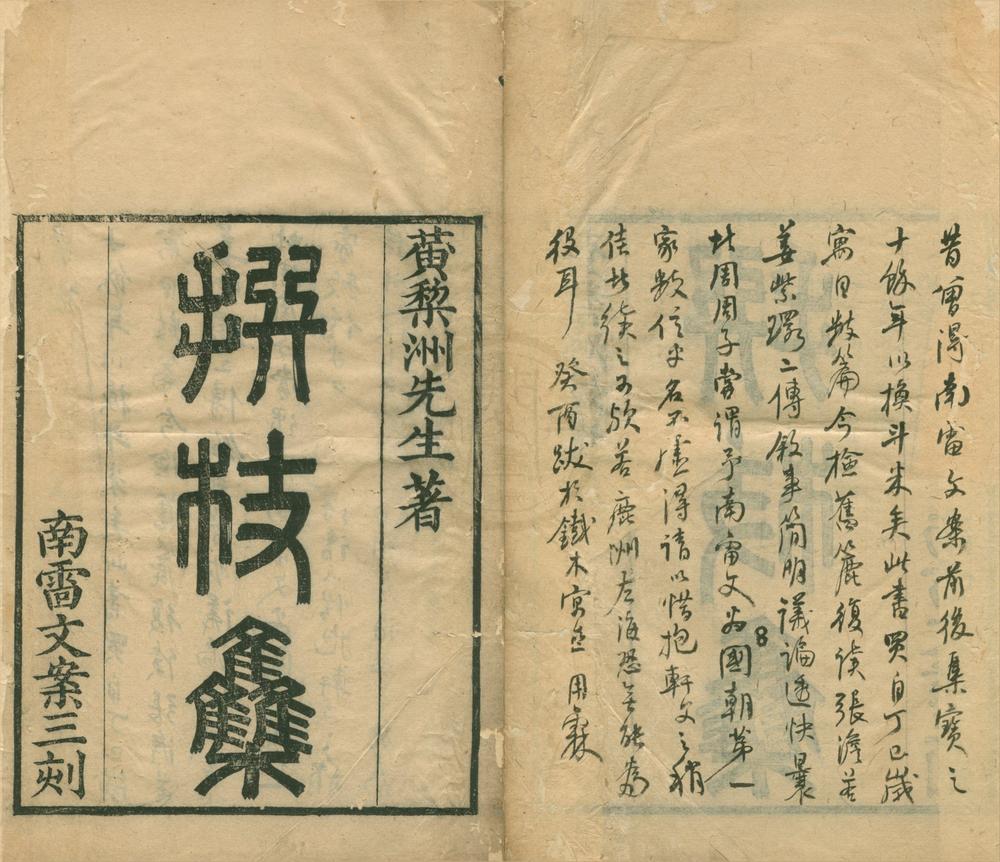 昔曾得南雷文案前後集寶之
十餘年以換斗米矣此書買自丁巳歲
寓目數篇今檢舊簏復讀張澹若
姜紫環二傳敘事簡明議論透快曩
周周子嘗謂予南雷文為國朝第一
家數信乎名不虛得請以惜抱軒文之稍
佳者之可敵若鹿洲左海恐無能為
役耳 癸酉跋於鐵木寓 用霖
8
黃棃洲先生著
撰杖雧
南雷文案三刻